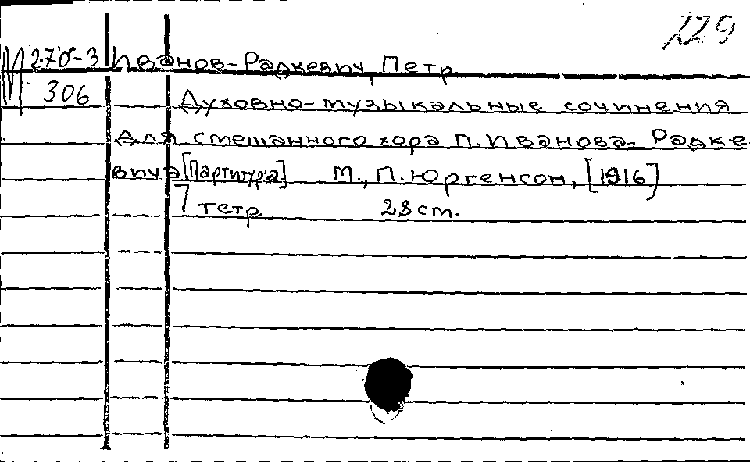 229
М 270-3 Иванов-Радкевич, Петр
306 Духовно-музыкальные сочинения
для смешанного хора П. Иванова-Радке-
вича [Партитура] М., П. Юргенсон, [1916]
7 тетр 28 ст.